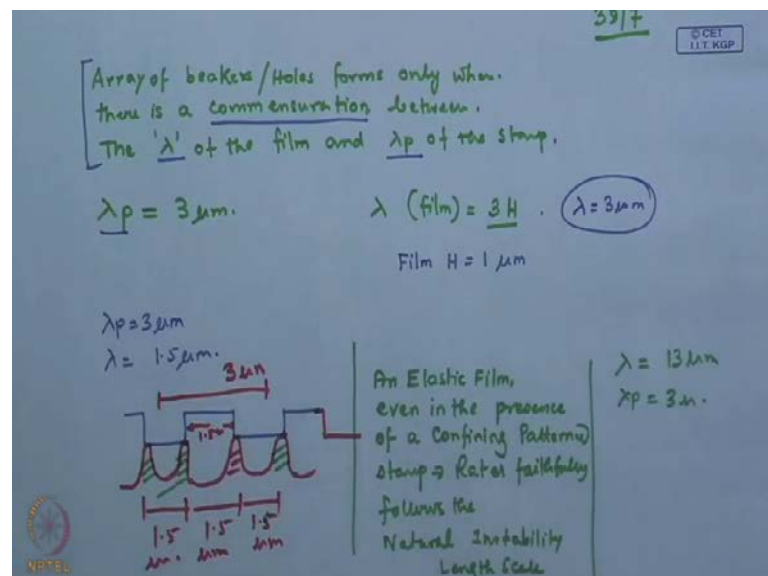 39/7
© CET
I.I.T. KGP
Array of beakers/Holes forms only when.
there is a commensuration between.
The 'λ' of the film and λp of the stamp.
λp = 3 μm.
λ (film) = 3 H . λ = 3 μm
Film H = 1 μm
λp = 3 μm
λ = 1.5 μm.
3 μm
1.5
1.5 1.5 1.5
μm. μm μm
An Elastic Film,
even in the presence
of a Confining Patterned
stamp → faithfully
follows the
Natural Instability
Length Scale
λ = 13 μm
λp = 3 μ.
NPTEL